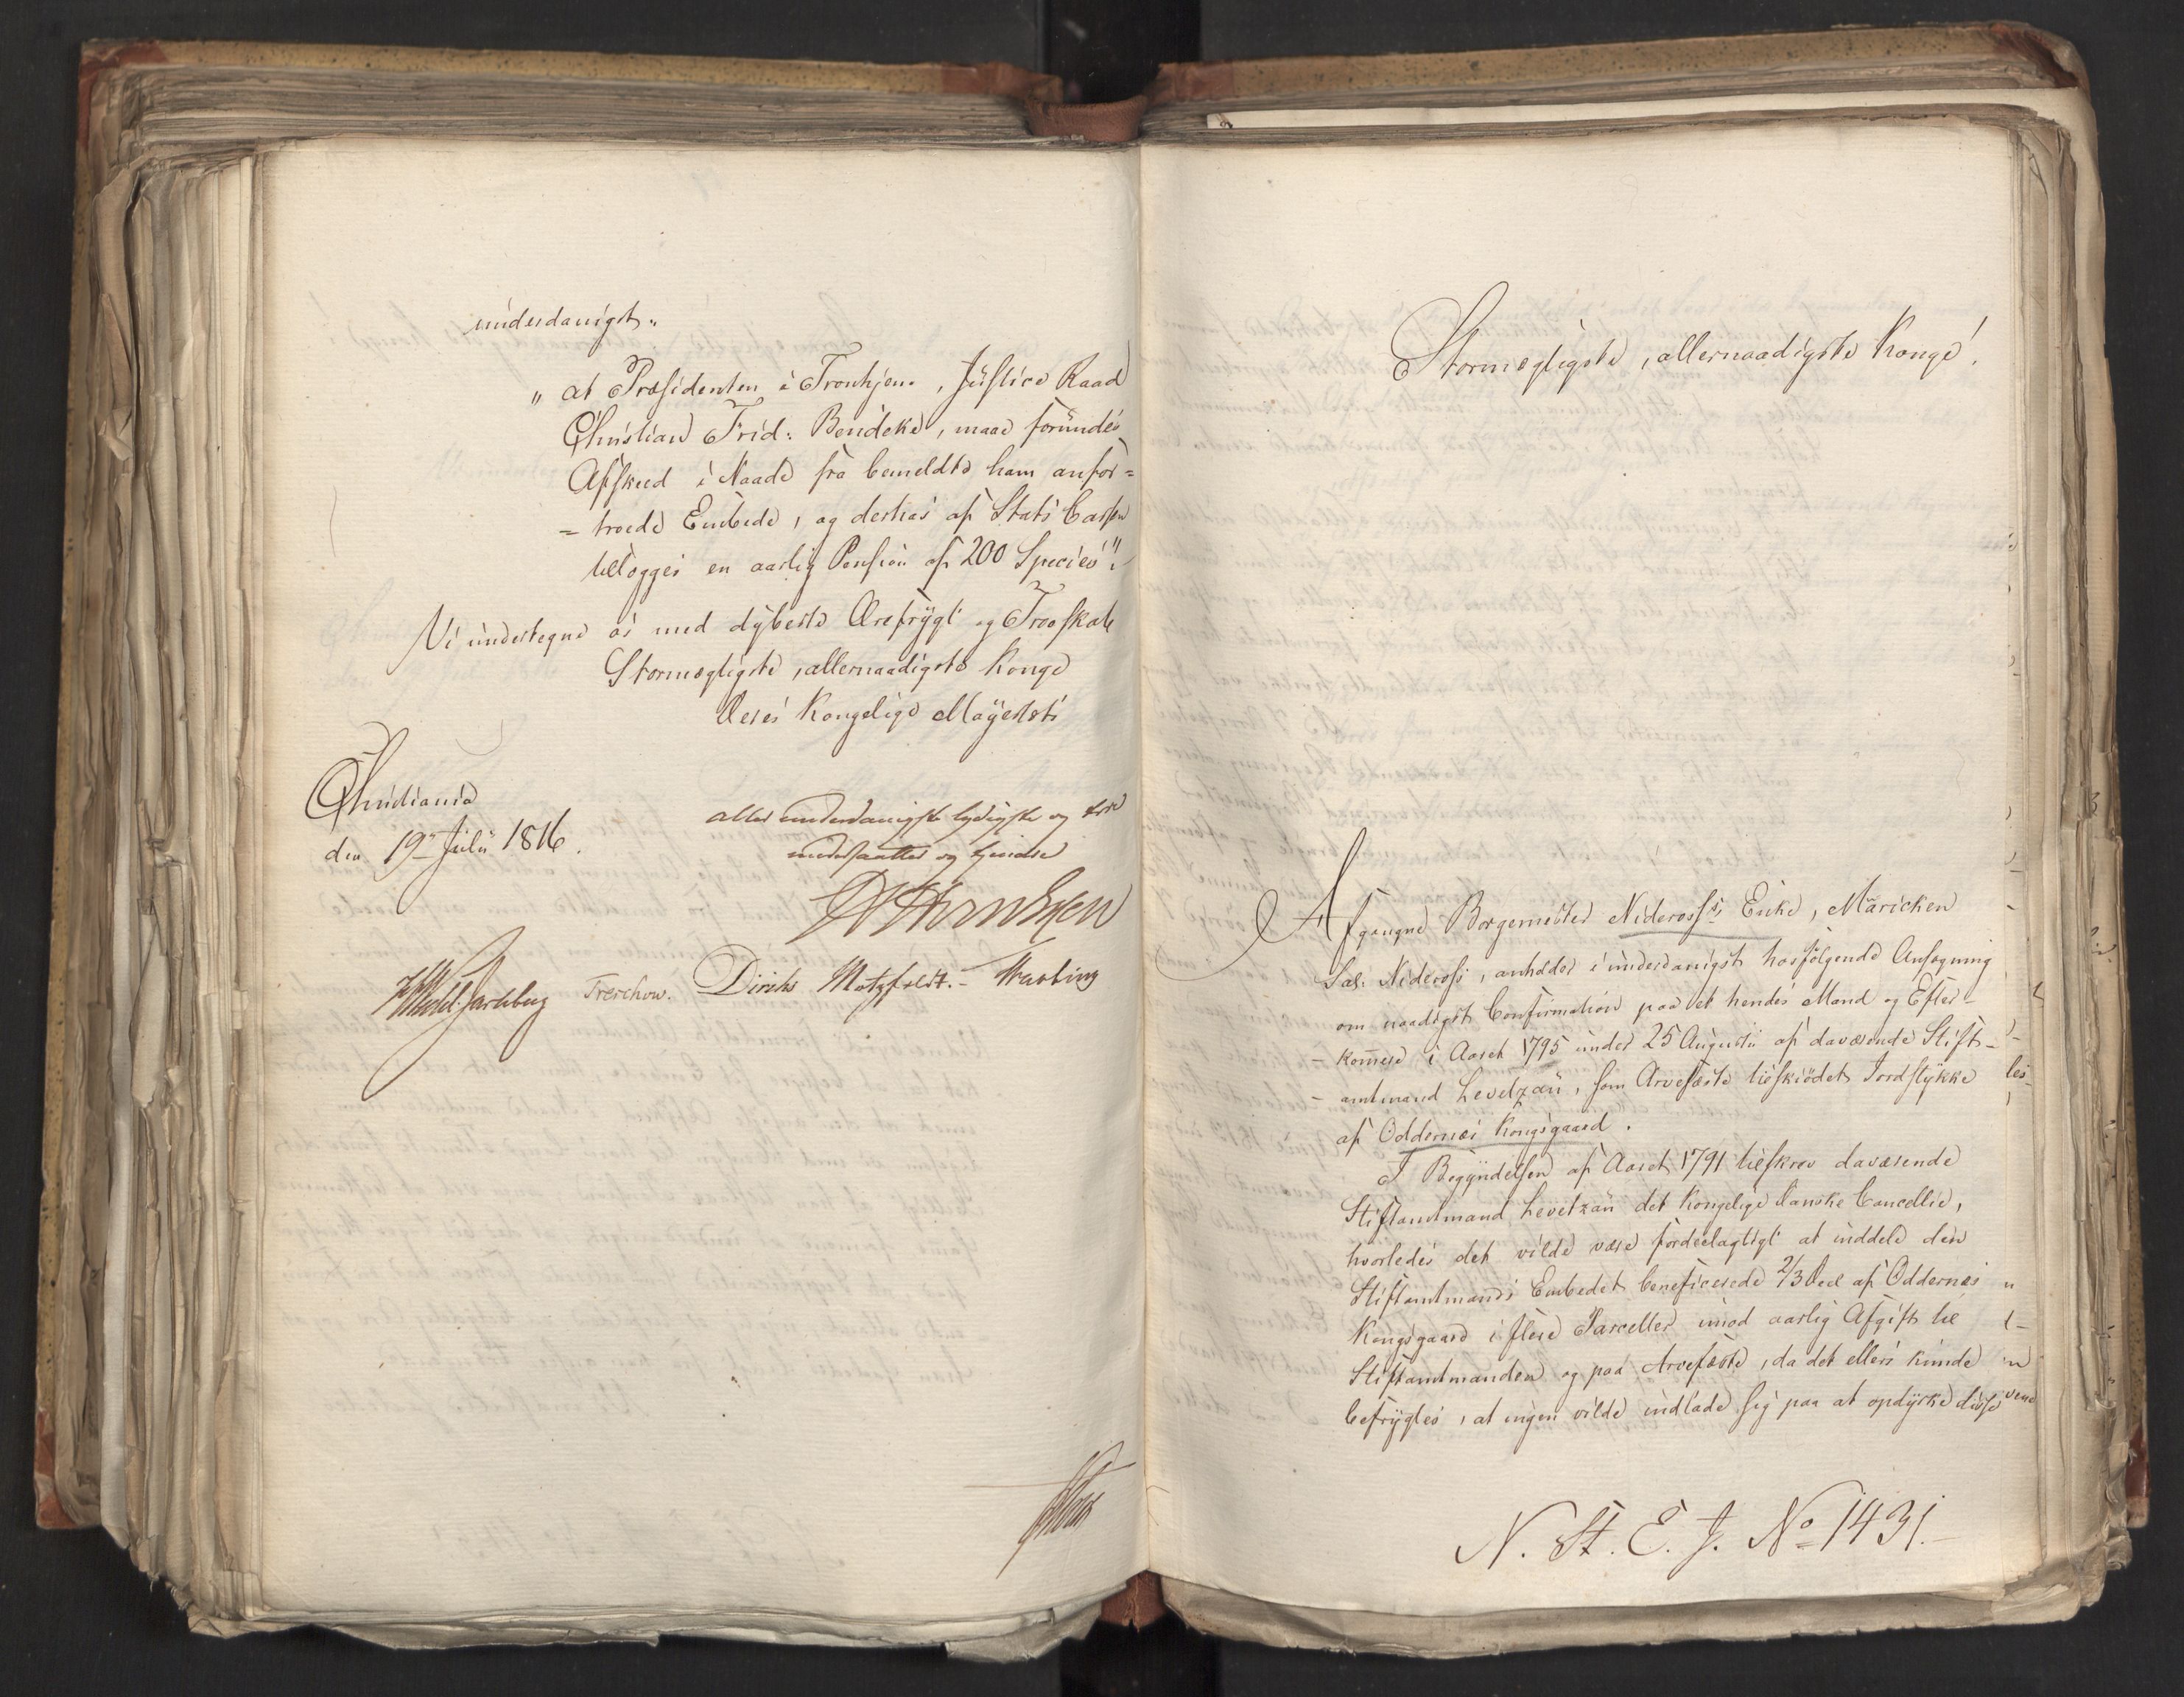 underdanigst:
"at Præsidenten i Tronhjem, Justice Raad
Christian Frid: Bendeke, maae forundes
Afskeed i Naade fra bemeldte ham anfor=
=troede Embede, og derhos af Stats Cassen
tillægges en aarlig Pension af 200 Species".
Vi undertegne os med dybeste Ærefrygt og Troeskab
Stormægtigste, allernaadigste Konge
Deres Kongelige Mayestæts
Christiania
den 19de Julii 1816.
aller underdanigste lydigste og troe
undersaatter og tjenere
M Wedel Jarlsberg Treschow. Diriks Motzfeldt.- Krebs
Stormægtigste, allernaadigste Konge!
Afgangne Borgemester Niderosss Enke, Maricken
Sal: Nideross, anholder i underdanigst hosfølgende Ansøgning
om naadigst Confirmation paa et hendes Mand og Efter-
-kom̅ere i Aaret 1795 under 25 Augustii af daværende Stift-
-amtmand Levetzau, som Arvefæste tilskiödet Jordstykke
af Oddernæs Kongsgaard.
I Begyndelsen af Aaret 1791 tilskrev daværende
Stiftamtmand Levetzau det Kongelige danske Cancellie,
hvorledes det vilde være fordeelagtigt at inddele den
Stiftamtmands Embedet beneficerede 2/3 Deel af Oddernæs
Kongsgaard i flere Parceller imod aarlig Afgift til
Stiftamtmanden og paa Arvefæste, da det ellers kunde
befrygtes, at ingen vilde indlade sig paa at opdyrke disse
N. St. E. J. No 1431.-